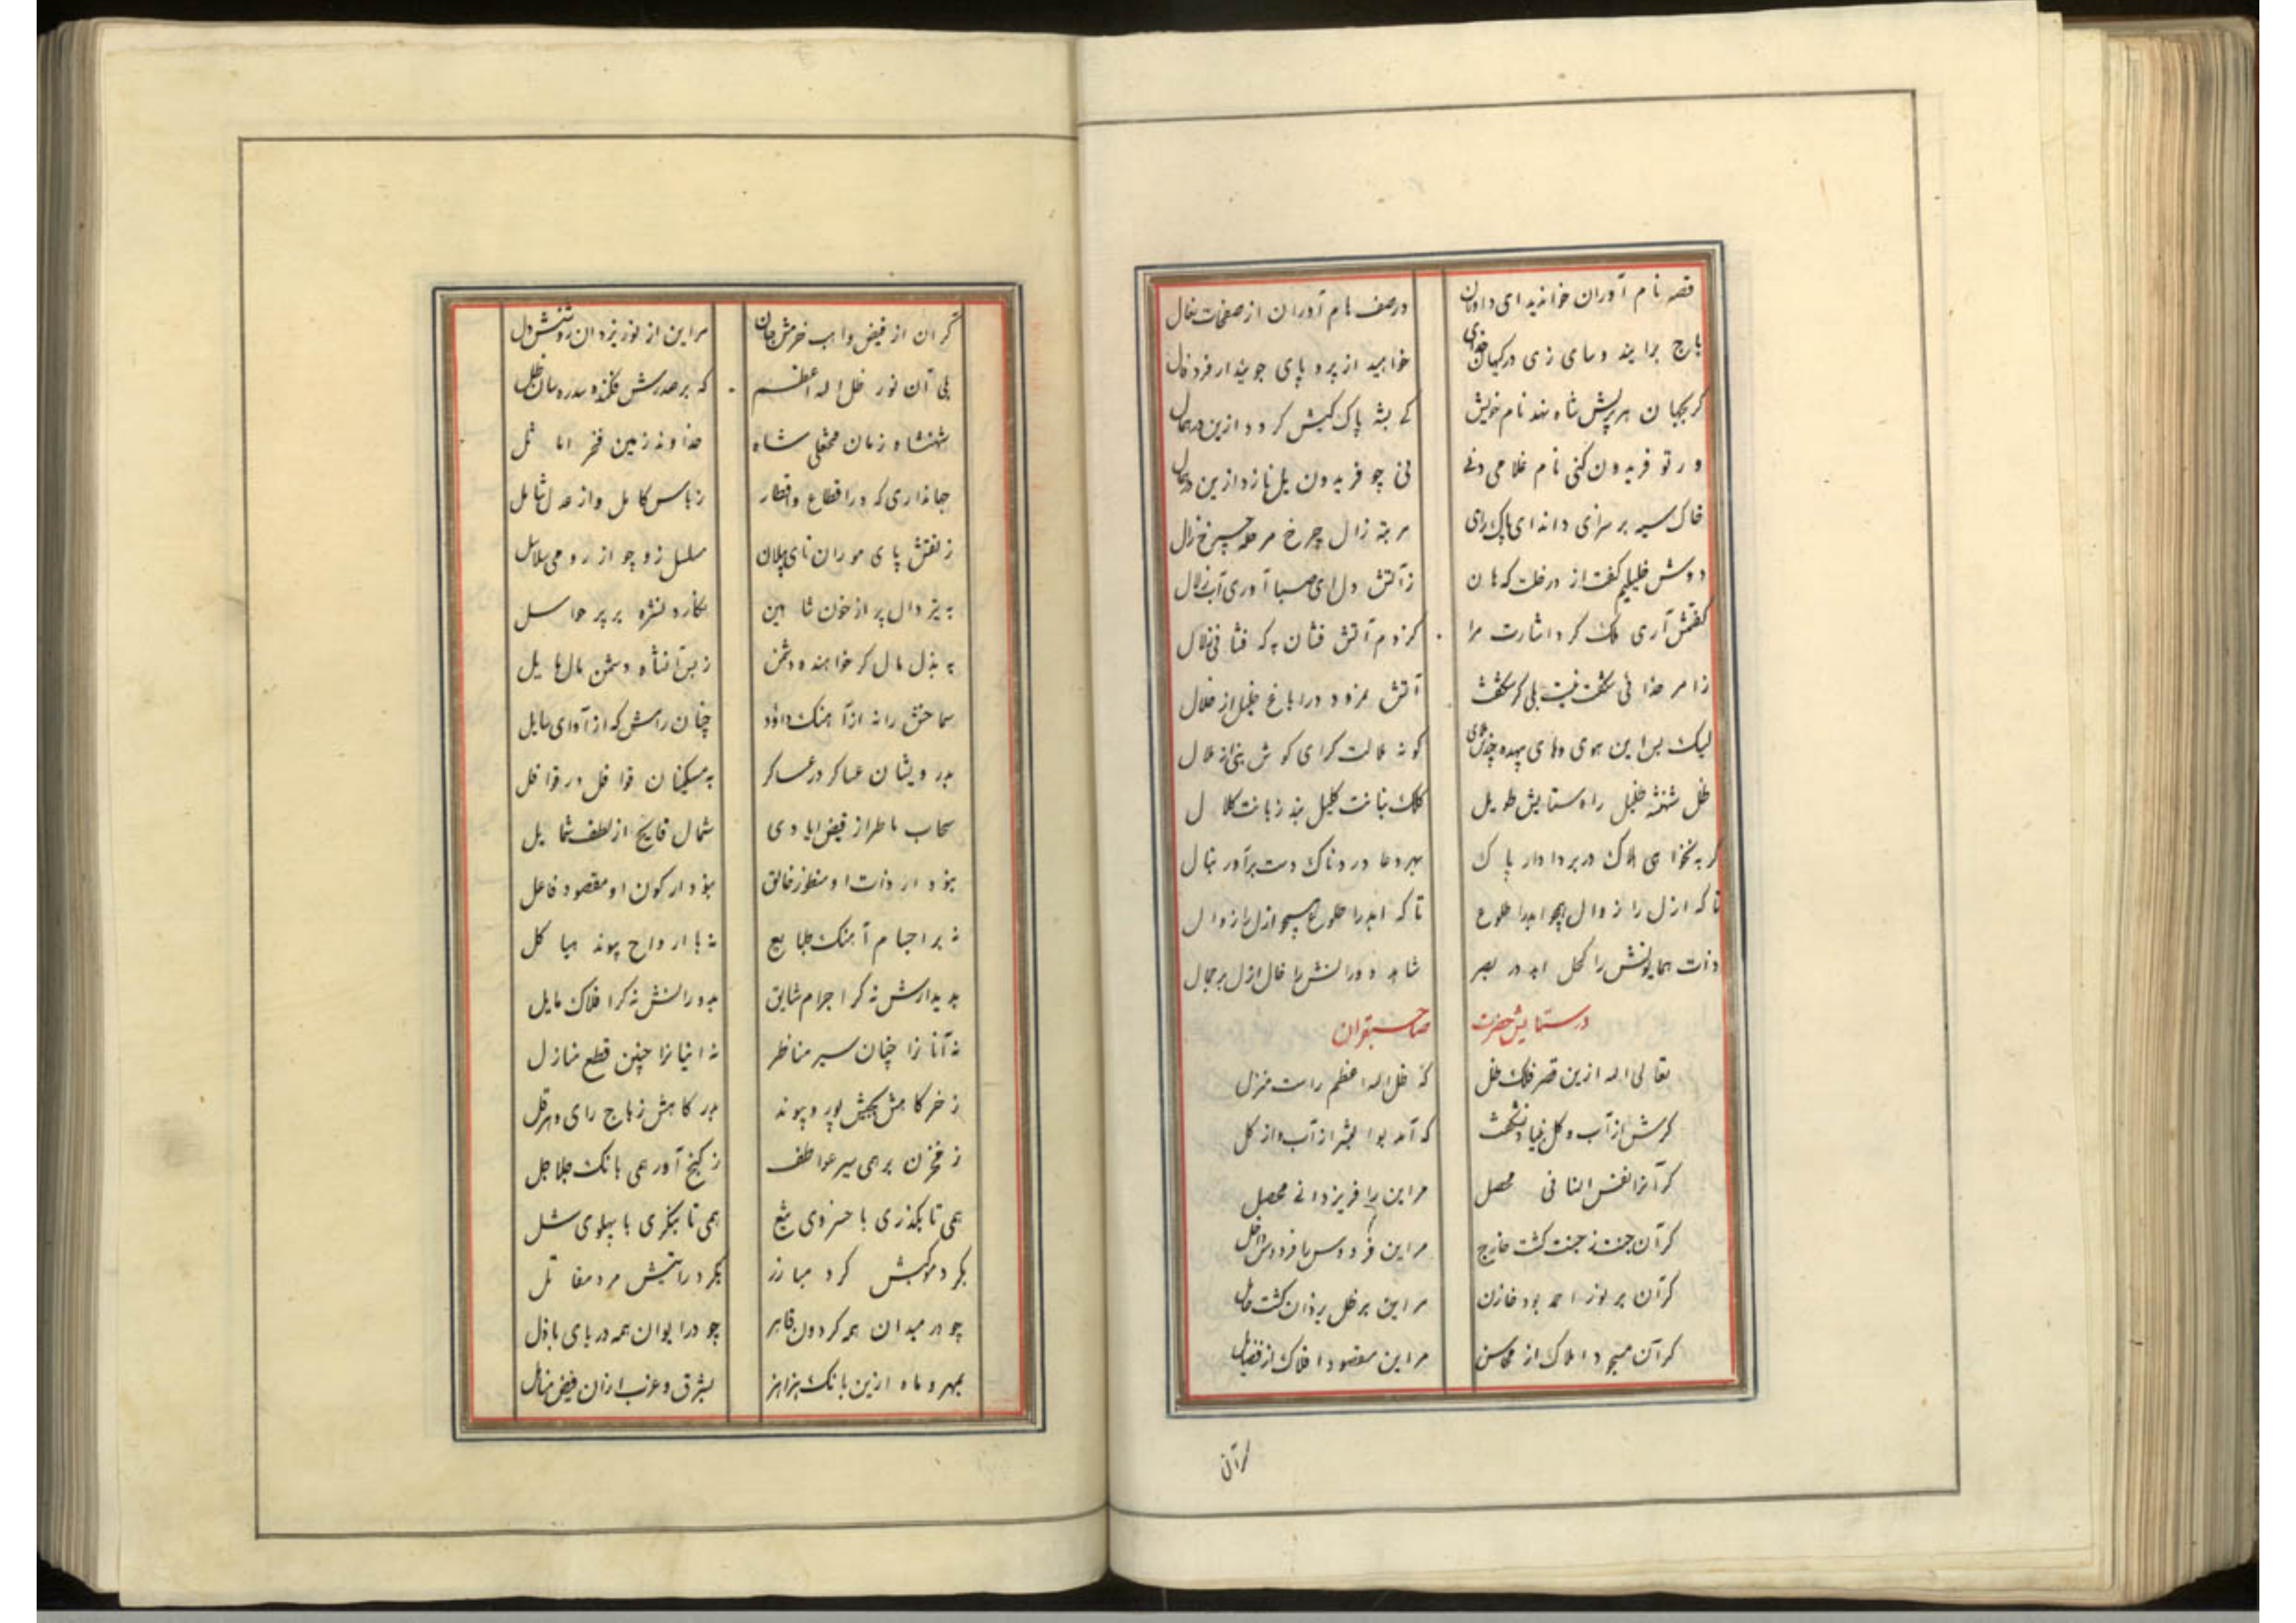 قصه نام آوران خوانید ای داوران
در صف نام آوران از صف نعال
باج براند وسای زی در کیهان خدای
خواهید از پر و پای جویند ار فر و فال
کر بجهان هر پرستش شاه نهد نام خویش
کی بشه پاک کیش کرود ازین در همال
ور تو فریدون کنی نام غلامی دنی
نی چو فریدون یل نازد ازین در
خاک سیه بر سرای دانه ای پاک رای
مرتبه زال چرخ مرحله چرخ زال
دوش خلیلیم کفت از در خلت که هان
ز آتش دل ای صبا آوری آب زلال
کفتمش آری ملک کرد اشارت مرا
کز دم آتش فشان به که فشانی زلال
زامر خدا نی شکفت نیست بلی کر شکفت
آتش نمرود را باغ خلیل از خلال
لیک بس این هوی و های بیهده چندش
کونه ملالت کرای کوش نبی از ملال
ظل شهنشه خلیل راه ستایش طویل
کلک بنانت کلیل بند زبانت کلال
کر به نخواهی هلاک در بر دادار پاک
بهر دعا دردناک دست برآور بنال
تا که ازل را زوال همچو ابد را طلوع
تا که ابد را طلوع همچو ازل را زوال
ذات همایونش را کحل ابد در بصر
شاهد دورانش را خال ازل بر جمال
در ستایش حضرت صاحبقران
تعالی اله ازین قصر فلک ظل
که ظل اله اعظم راست منزل
کرش از آب و کل بنیاد نشکفت
که آمد بوالبشر از آب و از کل
کر آنرا نفس انسانی محصل
مر این را فر یزدانی محصل
کر آن جنت ز جنت کشت خارج
مر این فردوس با فردوس داخل
کر آن بر نور احمد بود خازن
مر این بر ظل یزدان کشت حامل
کر آن مسجود املاک از محاسن
مر این مقصود افلاک از فضایل
کر آن
کر ان از فیض واهب خرمش جان
مر این از نور یزدان روشنش دل
بلی آن نور ظل اله اعظم
که بر صدرش فکنده سدره سان ظل
شهنشاه زمان فتحعلی شاه
خداوند زمین فخر اماثل
جهانداری که در اقطاع و اقطار
ز باس کامل و از عدل شامل
ز لفتش پای موران نای پیلان
سلسل زو چو از رومی سلاسل
به تیر دال پر از خون شاهین
نکارد لنزه بر پر حواصل
به بذل مال کر خواهنده دشمن
ز بس آنشاه دشمن مال هایل
سماحش رانه از آهنک داود
چنان رامش که از آوای سایل
بدرویشان عساکر در عساکر
به مسکینان قوافل در قوافل
سحاب ماطر از فیض ایادی
شمال فایح از لطف شمایل
نبود ار ذات او منظور خالق
نبود ار کون او مقصود فاعل
نه بر اجسام آهنک طبایع
نه با ارواح پیوند هیاکل
بدیدارش نه کر اجرام شایق
بدورانش نه کر افلاک مایل
نه آنانرا چنان سیر مناظر
نه اینانرا چنین قطع منازل
ز خرکاهش بجیش پور و پیوند
بدرکاهش ز باج رای و هرقل
ز مخزن بر همی سیر عواطف
ز کنج آور همی بانک جلاجل
همی تا بگذری با خسروی تبع
همی تا بنکری با پهلوی شل
بکرد موکبش کرد مبارز
بکرد رایتش مرد مقاتل
چو در میدان همه کردون قاهر
چو در ایوان همه دریای باذل
بمهر و ماه ازین بانک هزاهز
بشرق و غرب ازان فیض مناهل